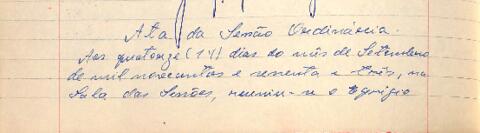 Ata da Sessão Ordinária.
Aos quatorze (14) dias do mês de Setembro
de mil novecentos e sessenta e três, na
Sala das Sessões, reuniu-se o Egrégio